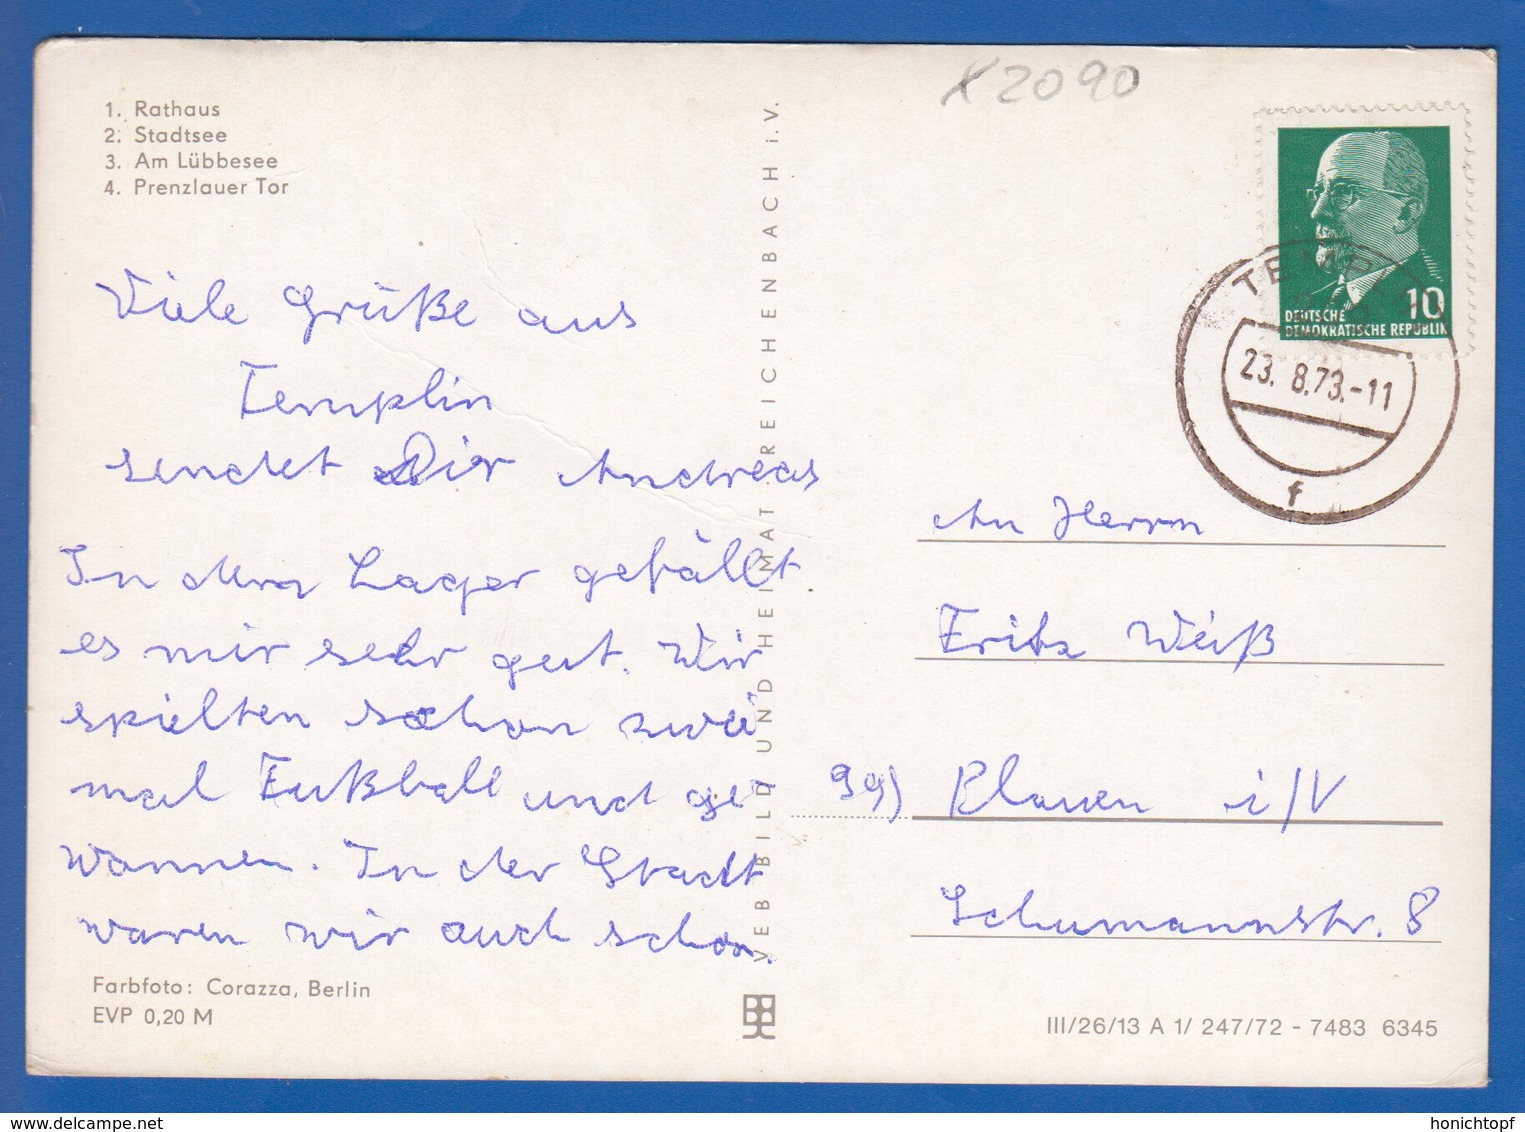 X 2090
1. Rathaus
2. Stadtsee
3. Am Lübbesee
4. Prenzlauer Tor
Viele Grüße aus
Templin
sendet Dir Andreas
In dem Lager gefällt
es mir sehr gut. Wir
spielten schon zwei
mal Fußball und ge
wannen. In der Stadt
waren wir auch schon.
Farbfoto: Corazza, Berlin
EVP 0,20 M
VEB BILD UND HEIMAT REICHENBACH i. V.
10
DEUTSCHE
DEMOKRATISCHE REPUBLIK
TEMPLIN
23. 8.73.-11
f
An Herrn
Fritz Weiß
99) Plauen i/V
Schumannstr. 8
III/26/13 A 1/ 247/72 - 7483 6345
www.delcampe.net
honichtopf